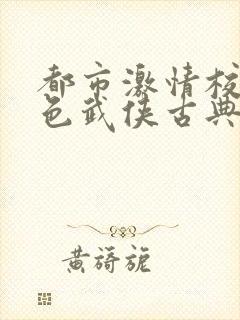 都市激情校
色武侠古典
黄旖旎